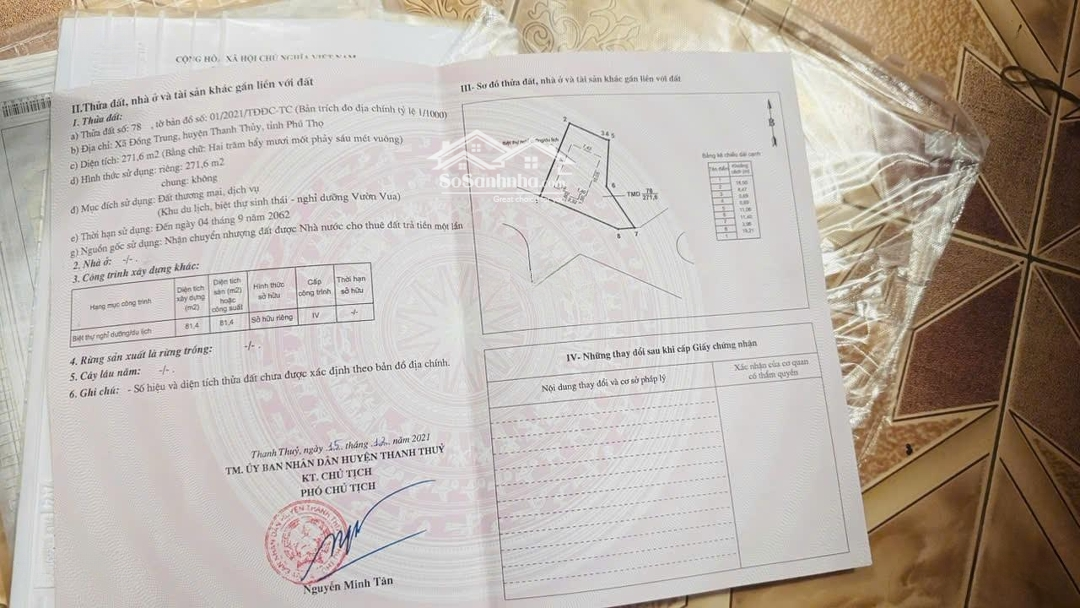 CỘNG HÒ. XÃ HỘI CHỦ NGHĨA VIỆT NAM
II.Thửa đất, nhà ở và tài sản khác gắn liền với đất
1. Thửa đất:
a) Thửa đất số: 78 , tờ bản đồ số: 01/2021/TĐĐC-TC (Bản trích đo địa chính tỷ lệ 1/1000)
b) Địa chỉ: Xã Đồng Trung, huyện Thanh Thủy, tỉnh Phú Thọ
c) Diện tích: 271,6 m2 (Bằng chữ: Hai trăm bẩy mươi mốt phảy sáu mét vuông)
d) Hình thức sử dụng: riêng: 271,6 m2
chung: không
đ) Mục đích sử dụng: Đất thương mại, dịch vụ
(Khu du lịch, biệt thự sinh thái - nghỉ dưỡng Vườn Vua)
e) Thời hạn sử dụng: Đến ngày 04 tháng 9 năm 2062
g) Nguồn gốc sử dụng: Nhận chuyển nhượng đất được Nhà nước cho thuê đất trả tiền một lần
2. Nhà ở: -/- .
3. Công trình xây dựng khác:
Hạng mục công trình
Diện tích xây dựng (m2)
Diện tích sàn (m2) hoặc công suất
Hình thức sở hữu
Cấp công trình
Thời hạn sở hữu
Biệt thự nghỉ dưỡng/du lịch
81,4
81,4
Sở hữu riêng
IV
-/-
4. Rừng sản xuất là rừng trồng: -/- .
5. Cây lâu năm: -/- .
6. Ghi chú: - Số hiệu và diện tích thửa đất chưa được xác định theo bản đồ địa chính.
Thanh Thuỷ, ngày 15 tháng 12 năm 2021
TM. ỦY BAN NHÂN DÂN HUYỆN THANH THUỶ
KT. CHỦ TỊCH
PHÓ CHỦ TỊCH
Nguyễn Minh Tân
III- Sơ đồ thửa đất, nhà ở và tài sản khác gắn liền với đất
B
2
3 4 5
6
7
8
TMD 78
271,6
Bảng kê chiều dài cạnh
SoSanhnha
IV- Những thay đổi sau khi cấp Giấy chứng nhận
Nội dung thay đổi và cơ sở pháp lý
Xác nhận của cơ quan
có thẩm quyền